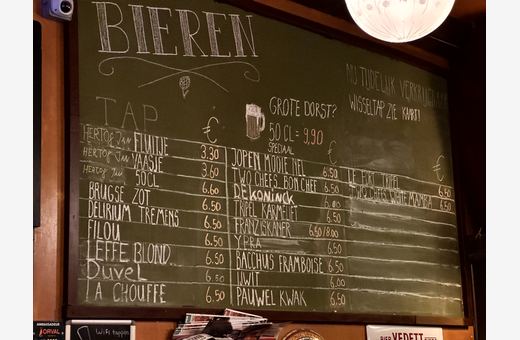 BIEREN
TAP
€
HERTOG JAN FLUITJE 3.30
HERTOG JAN VAASJE 3.60
HERTOG JAN 50CL 6.60
BRUGSE ZOT 6.50
DELIRIUM TREMENS 6.50
FILOU 6.50
LEFFE BLOND 6.50
Duvel 6.50
LA CHOUFFE 6.50
GROTE DORST?
50 CL = 9,90
SPECIAAL
€
JOPEN MOOIE NEL 6.50
TWO CHEFS BON CHEF 6.50
DE KONINCK 6.00
TRIPEL KARMELIET 6.50
FRANZISKANER 6.50/8.00
YPRA 6.50
BACCHUS FRAMBOISE 6.50
IJWIT 6.00
PAUWEL KWAK 6.50
NU TIJDELIJK
WISSELTAP ZIE KAART!
€
6.50
TWO CHEFS WHITE MAMBA 6.50
AMBASSADEUR
ORVAL
WiFi
BIER VEDETT